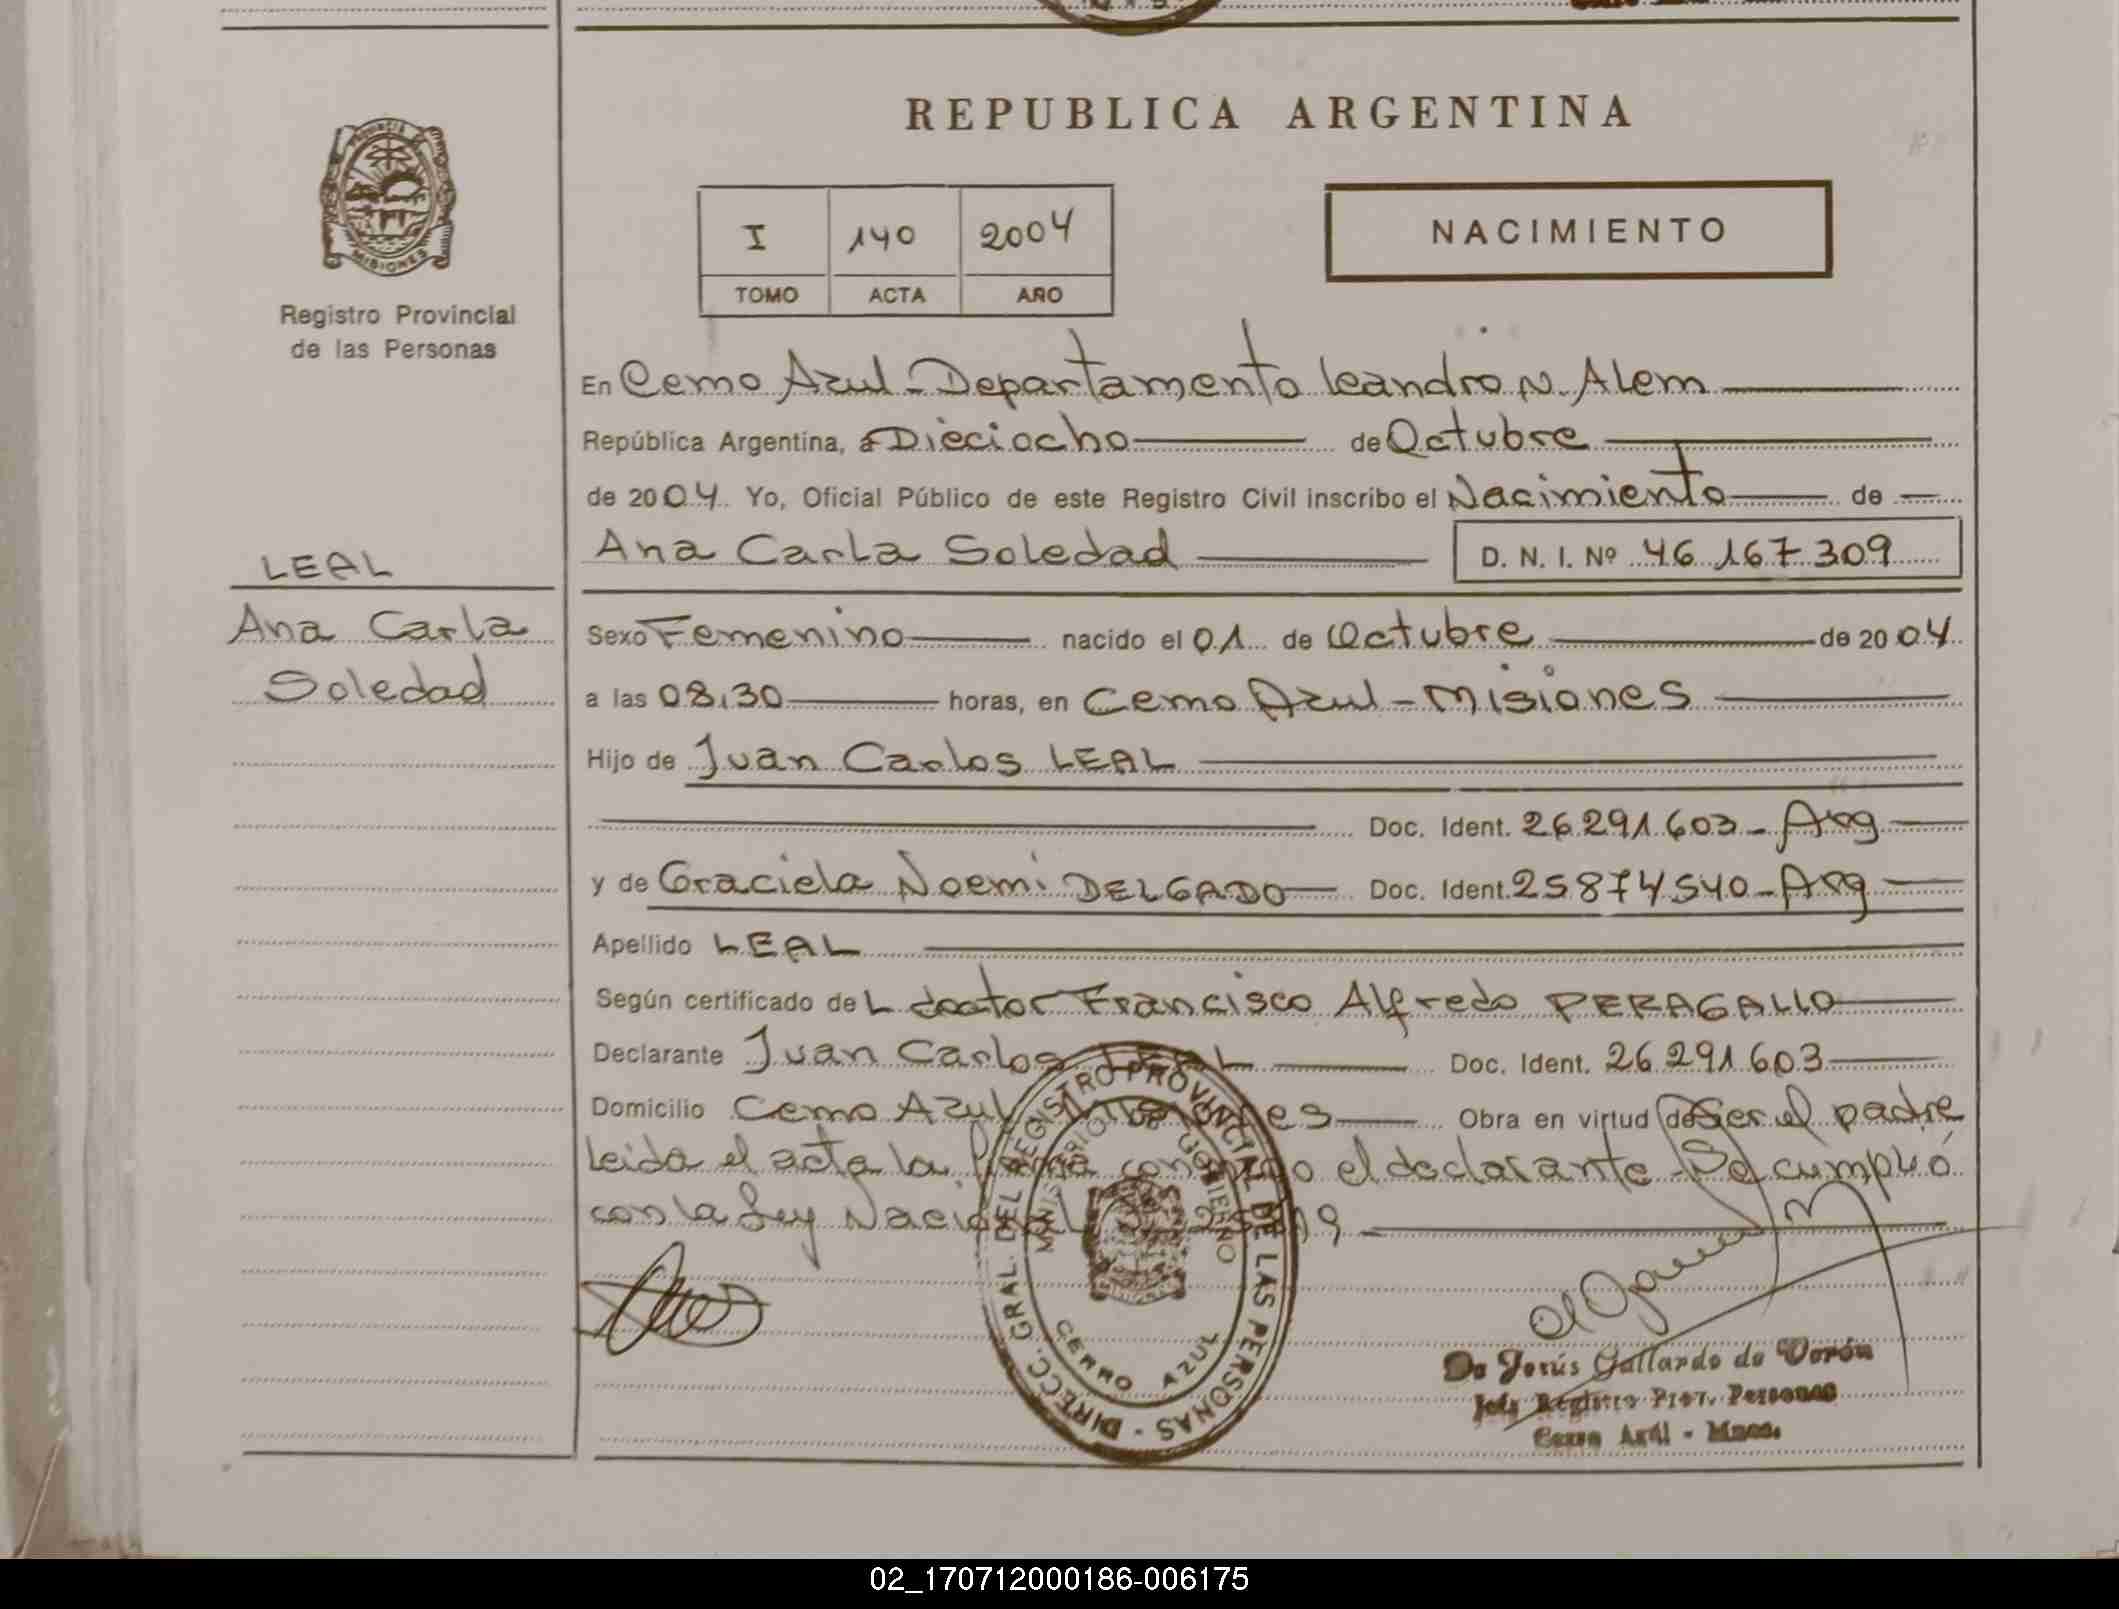 REPUBLICA ARGENTINA
PROVINCIA DE MISIONES
Registro Provincial
de las Personas
I 140 2004
TOMO ACTA AÑO
NACIMIENTO
En Cerro Azul - Departamento Leandro N. Alem
República Argentina, a Dieciocho de Octubre
de 2004 Yo, Oficial Público de este Registro Civil inscribo el Nacimiento de
Ana Carla Soledad D. N. I. Nº 46.167.309
LEAL
Ana Carla
Soledad
Sexo Femenino nacido el 01 de Octubre de 2004
a las 08,30 horas, en Cerro Azul - Misiones
Hijo de Juan Carlos LEAL
Doc. Ident. 26.291.603 - Arg
y de Graciela Noemi DELGADO Doc. Ident. 25.874.540 - Arg
Apellido LEAL
Según certificado del doctor Francisco Alfredo PERAGALLO
Declarante Juan Carlos LEAL Doc. Ident. 26.291.603
Domicilio Cerro Azul Misiones Obra en virtud de Ser el padre
Leida el acta la firma conmigo el declarante - Se cumplió
con la Ley Nacional
DIRECC. GRAL. DEL REGISTRO PROVINCIAL DE LAS PERSONAS
MINISTERIO DE GOBIERNO
CERRO AZUL
De Jesús Gallardo de Verón
Jefe Registro Prov. Personas
Cerro Azul - Mnes.
02_170712000186-006175